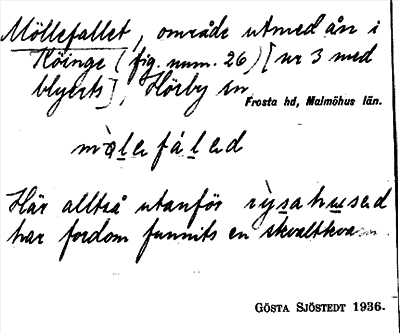 Möllefallet, område utmed ån i
Höinge (fig. num. 26) [nr 3 med
blyerts], Hörby sn
Frosta hd, Malmöhus län.
Här alltså utanför
har fordom funnits en skvaltkvarn
GÖSTA SJÖSTEDT 1936.